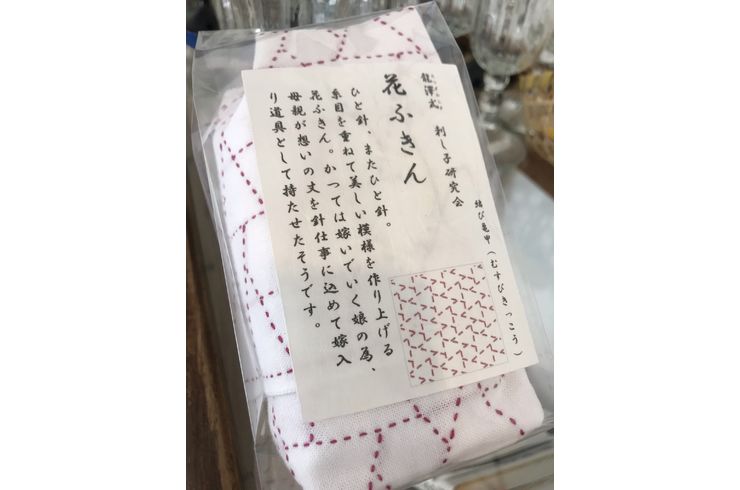 龍澤式 刺し子研究会
花ふきん
ひと針、またひと針。
糸目を重ねて美しい模様を作り上げる
花ふきん。かつては嫁いでいく娘の為、
母親が想いの丈を針仕事に込めて嫁入
り道具として持たせたそうです。
結び亀甲(むすびきっこう)